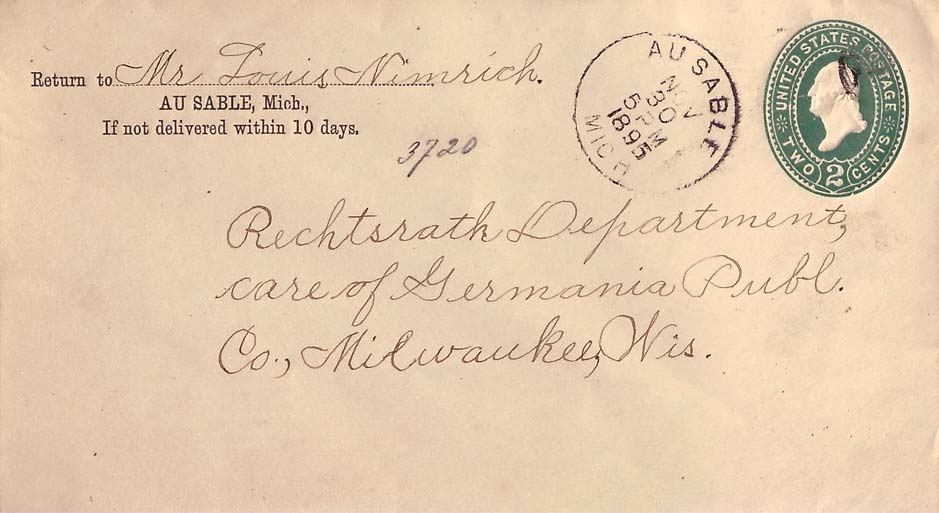 Return to Mr Louis Nimrich.
AU SABLE, Mich.,
If not delivered within 10 days.
3720
AU SABLE
NOV
30
5 PM
1895
MICH
UNITED STATES POSTAGE
TWO 2 CENTS
Rechtsrath Department,
care of Germania Publ.
Co., Milwaukee, Wis.